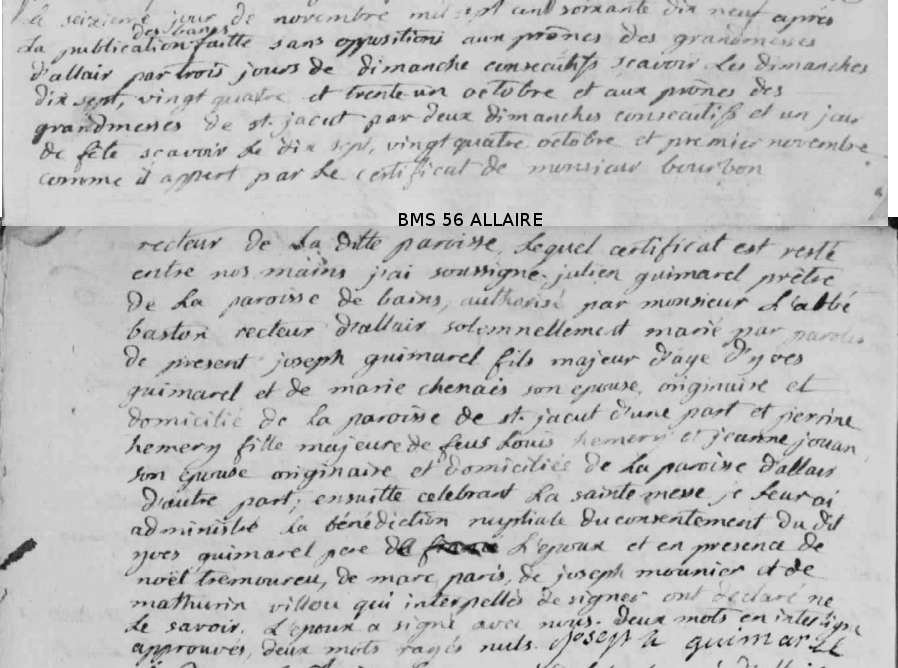 Le seizieme jour de novembre mil sept cent soixante dix neuf apres
des bans
La publication faitte sans oppositions aux prônes des grandmesses
d'allair par trois jours de dimanche consecutifs scavoir Les dimanches
dix sept, vingt quatre et trente un octobre et aux prônes des
grandmesses de st. jacut par deux dimanches consecutifs et un jour
de fête scavoir Le dix sept, vingt quatre octobre et premier novembre
comme il appert par Le certificat de monsieur bourbon
BMS 56 ALLAIRE
recteur de La ditte paroisse, Lequel certificat est resté
entre nos mains j'ai soussigné julien guimarel prêtre
de La paroisse de bains, authorisé par monsieur L'abbé
bastar recteur d'allair solemnellement marié par paroles
de present joseph guimarel fils majeur d'age d'yves
guimarel et de marie chenais son epouse, originaire et
domicilié de La paroisse de st. jacut d'une part et perrine
hemery fille majeure de feus Louis hemery et jeanne jouan
son epouse originaire et domiciliée de La paroisse d'allair
d'autre part, ensuitte celebrant La sainte messe je Leur ai
administré La bénédiction nuptiale du consentement du dit
yves guimarel pere de L'epoux et en presence de
noël tremoureu, de marc paris, de joseph mounier et de
mathurin villou qui interpellés de signer ont declaré ne
Le savoir. L'epoux a signé avec nous. deux mots en interligne
approuvés, deux mots rayés nuls. joseph guimarel